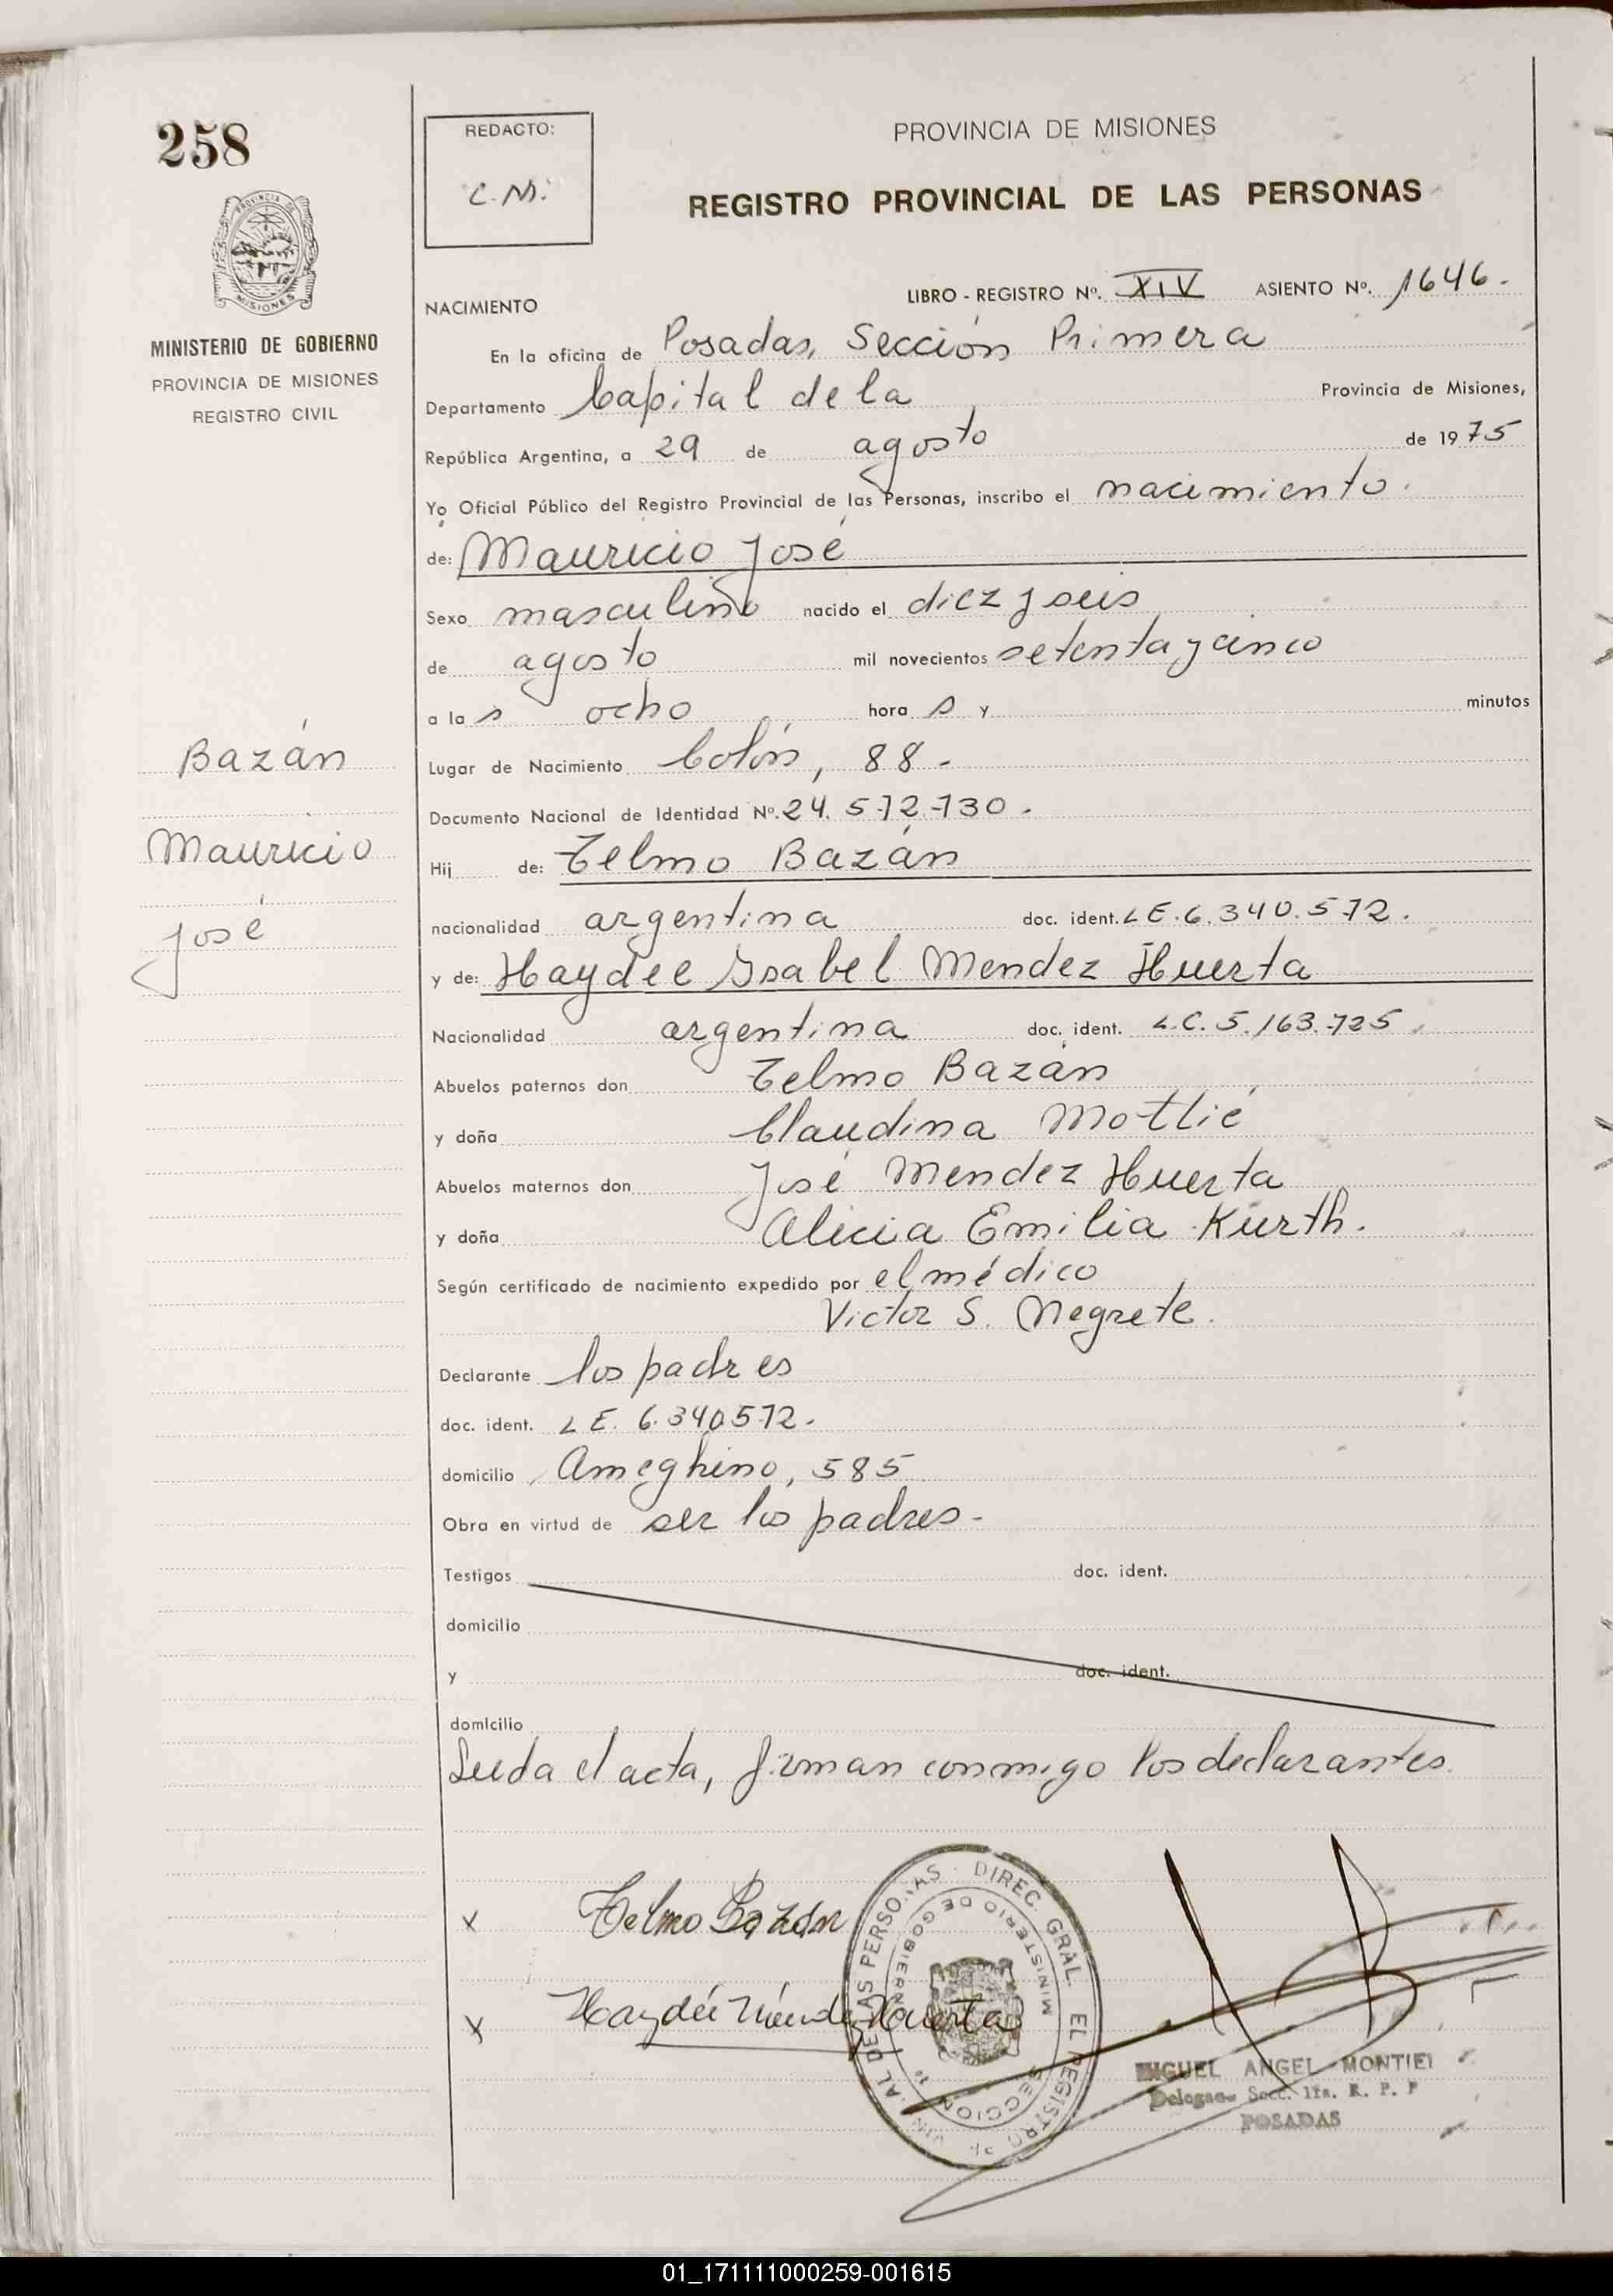 258
REDACTO:
C. M.
PROVINCIA DE MISIONES
REGISTRO PROVINCIAL DE LAS PERSONAS
MISIONES
MINISTERIO DE GOBIERNO
PROVINCIA DE MISIONES
REGISTRO CIVIL
NACIMIENTO
LIBRO - REGISTRO Nº. XIV ASIENTO Nº. 1646.
En la oficina de Posadas, Sección Primera
Departamento Capital de la Provincia de Misiones,
República Argentina, a 29 de agosto de 1975
Yo Oficial Público del Registro Provincial de las Personas, inscribo el nacimiento.
de: Mauricio José
Sexo masculino nacido el diez y seis
de agosto mil novecientos setenta y cinco
a la s ocho hora s y minutos
Bazán
Mauricio
José
Lugar de Nacimiento Colón, 88.
Documento Nacional de Identidad Nº. 24.572.730.
Hij de: Telmo Bazán
nacionalidad argentina doc. ident. L E. 6.340.572.
y de: Haydee Ysabel Mendez Huerta
Nacionalidad argentina doc. ident. L.C. 5.163.725.
Abuelos paternos don Telmo Bazán
y doña Claudina Mottié
Abuelos maternos don José Mendez Huerta
y doña Alicia Emilia Kurth.
Según certificado de nacimiento expedido por el médico
Victor S. Negrete.
Declarante los padres
doc. ident. L E. 6.340572.
domicilio Ameghino, 585
Obra en virtud de ser los padres.
Testigos doc. ident.
domicilio
y doc. ident.
domicilio
Leida el acta, firman conmigo los declarantes.
x Telmo Bazán
x Haydeé Méndez Huerta
DIREC. GRAL. EL REGISTRO
MINISTERIO DE GOBIERNO
SECCION 1ª
MIGUEL ANGEL MONTIEL
Delegado Secc. 1ra. R. P. P
POSADAS
01_171111000259-001615